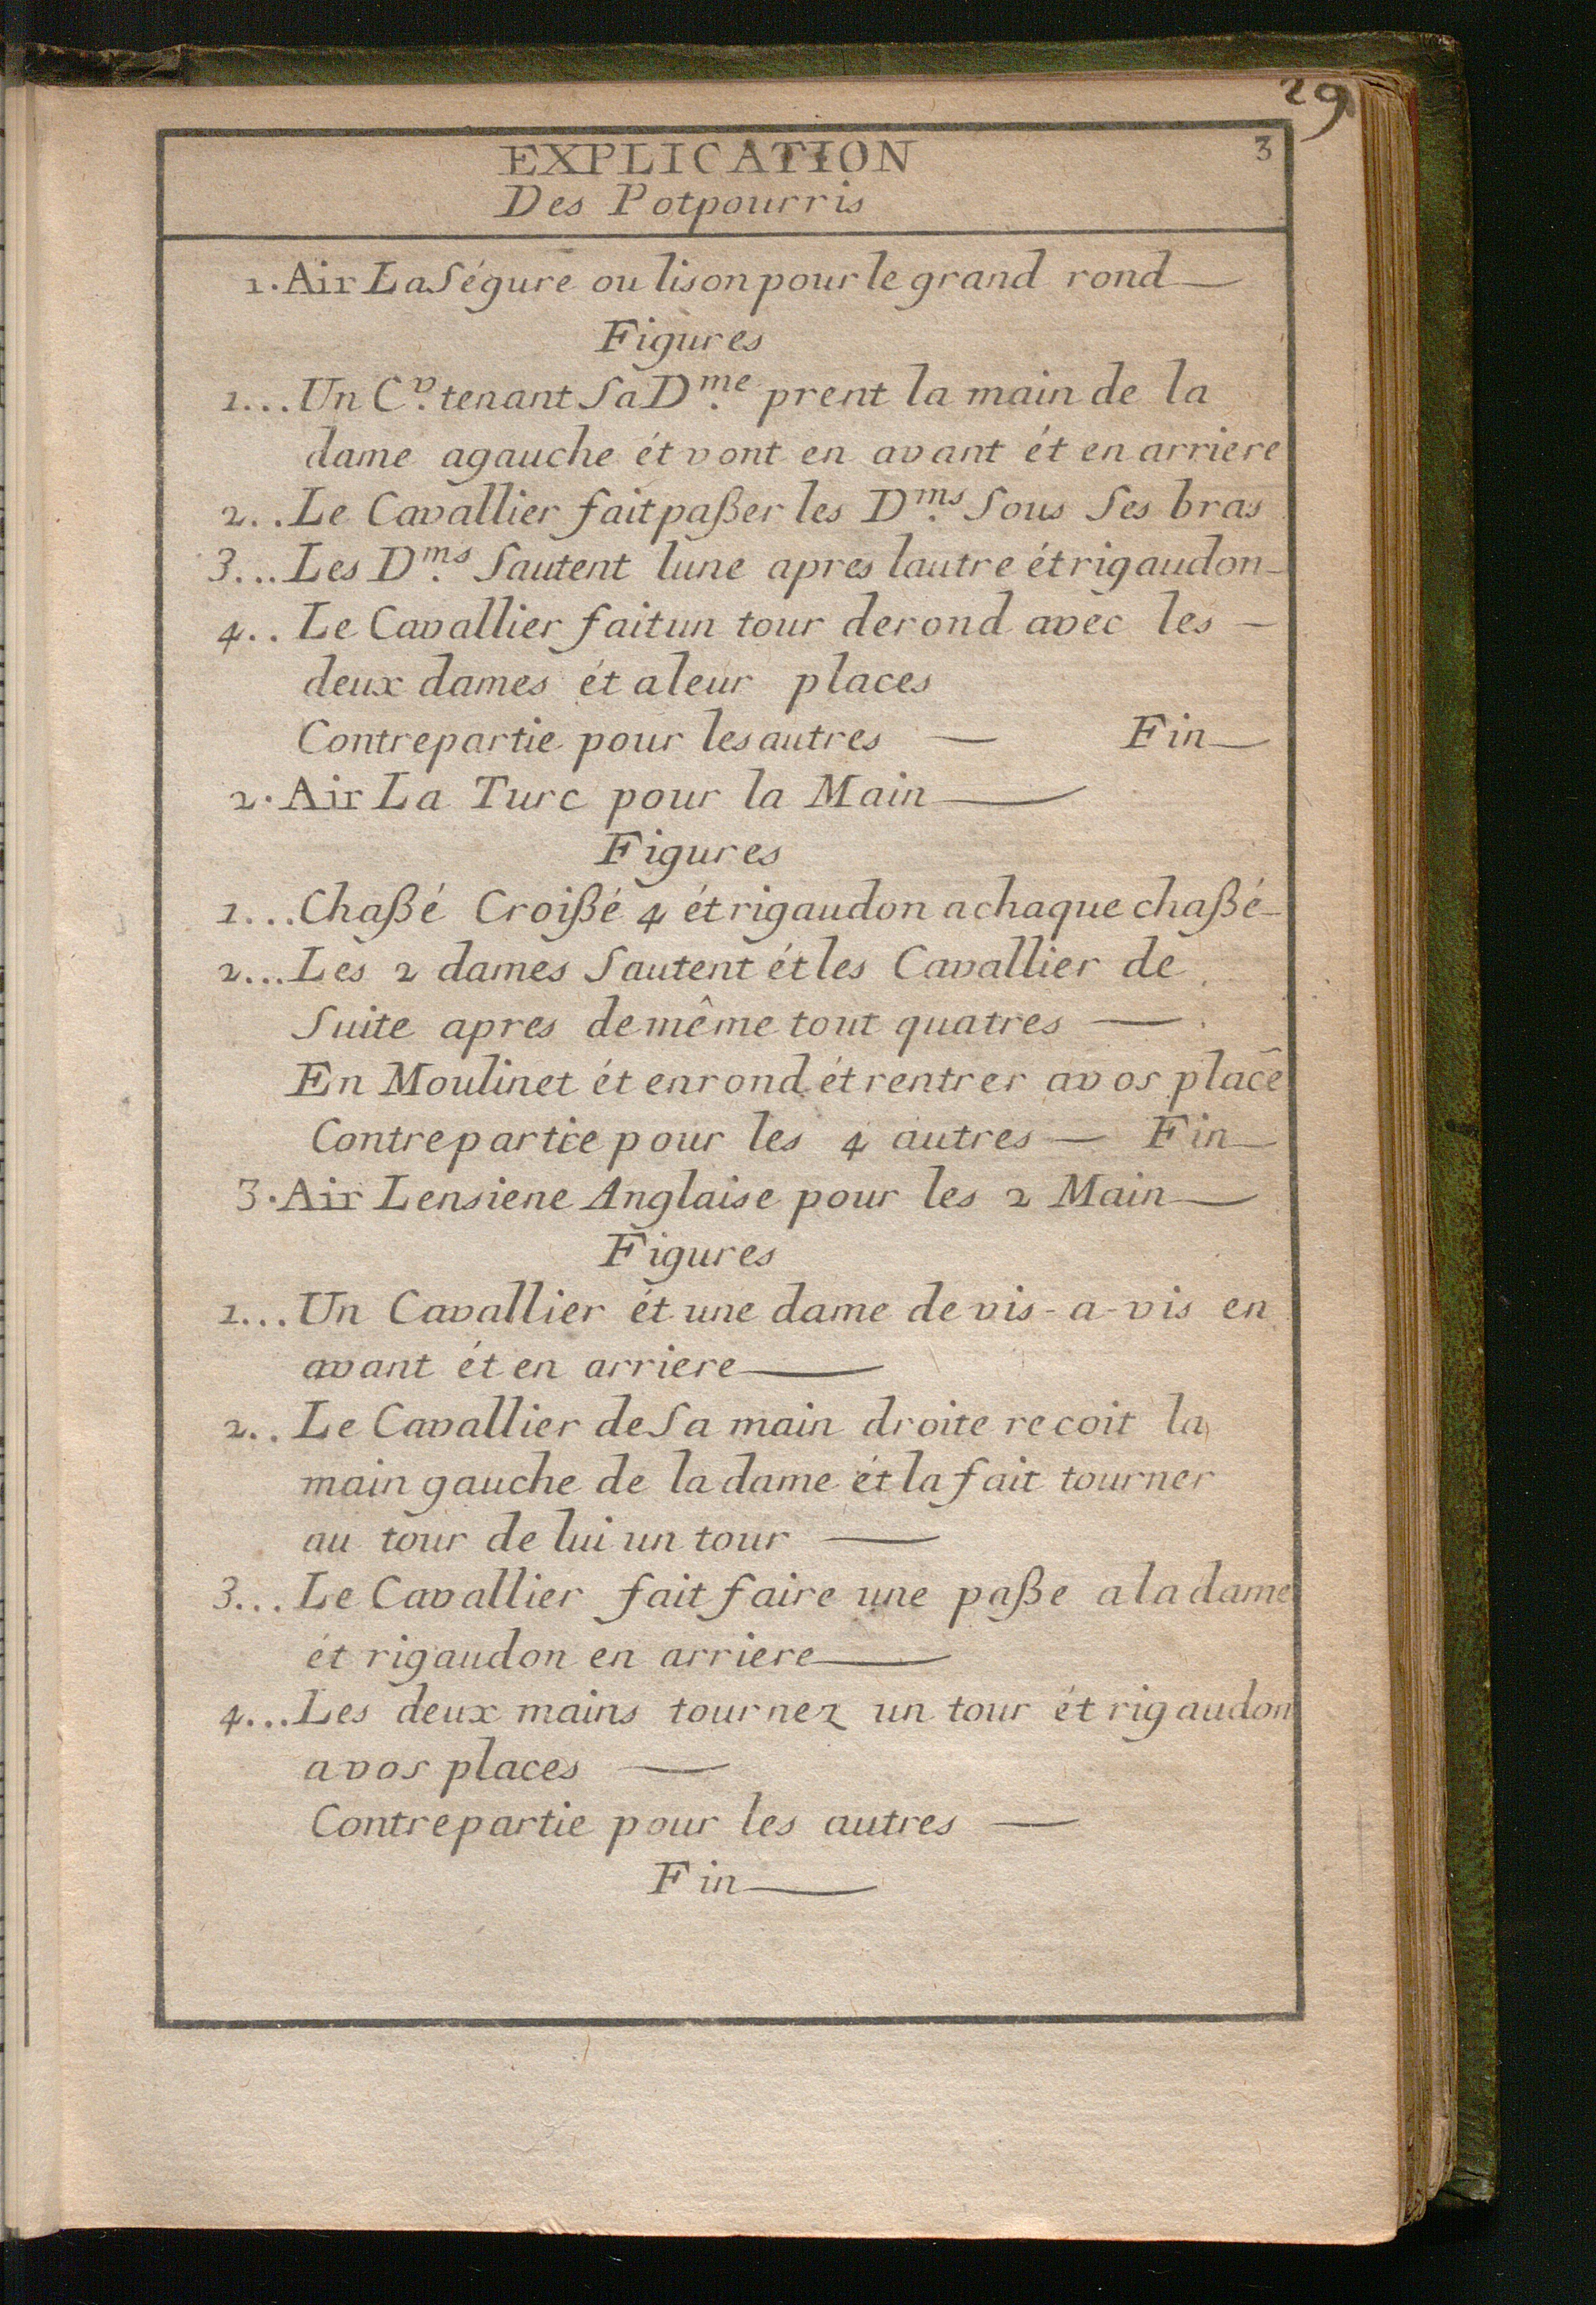 29
3
EXPLICATION
Des Potpourris
1. Air La Ségure ou lison pour le grand rond —
Figures
1... Un Cv. tenant Sa Dme. prent la main de la
dame agauche ét vont en avant ét en arriere
2.. Le Cavallier fait paßer les Dms. Sous Ses bras
3... Les Dms. Sautent lune apres lautre ét rigaudon —
4.. Le Cavallier fait un tour de rond avec les —
deux dames ét a leur places
Contrepartie pour les autres — Fin —
2. Air La Turc pour la Main —
Figures
1... Chaßé Croißé 4 ét rigaudon a chaque chaßé —
2... Les 2 dames Sautent ét les Cavallier de
Suite apres de même tout quatres —
En Moulinet ét en rond ét rentrer a vos placẽ
Contrepartie pour les 4 autres — Fin —
3. Air Lensiene Anglaise pour les 2 Main —
Figures
1... Un Cavallier ét une dame de vis-a-vis en
avant ét en arriere —
2.. Le Cavallier de Sa main droite recoit la
main gauche de la dame ét la fait tourner
au tour de lui un tour —
3... Le Cavallier fait faire une paße a la dame
ét rigaudon en arriere —
4... Les deux mains tournez un tour ét rigaudon
a vos places —
Contrepartie pour les autres —
Fin —